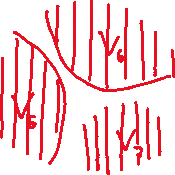 V6
V5
V7